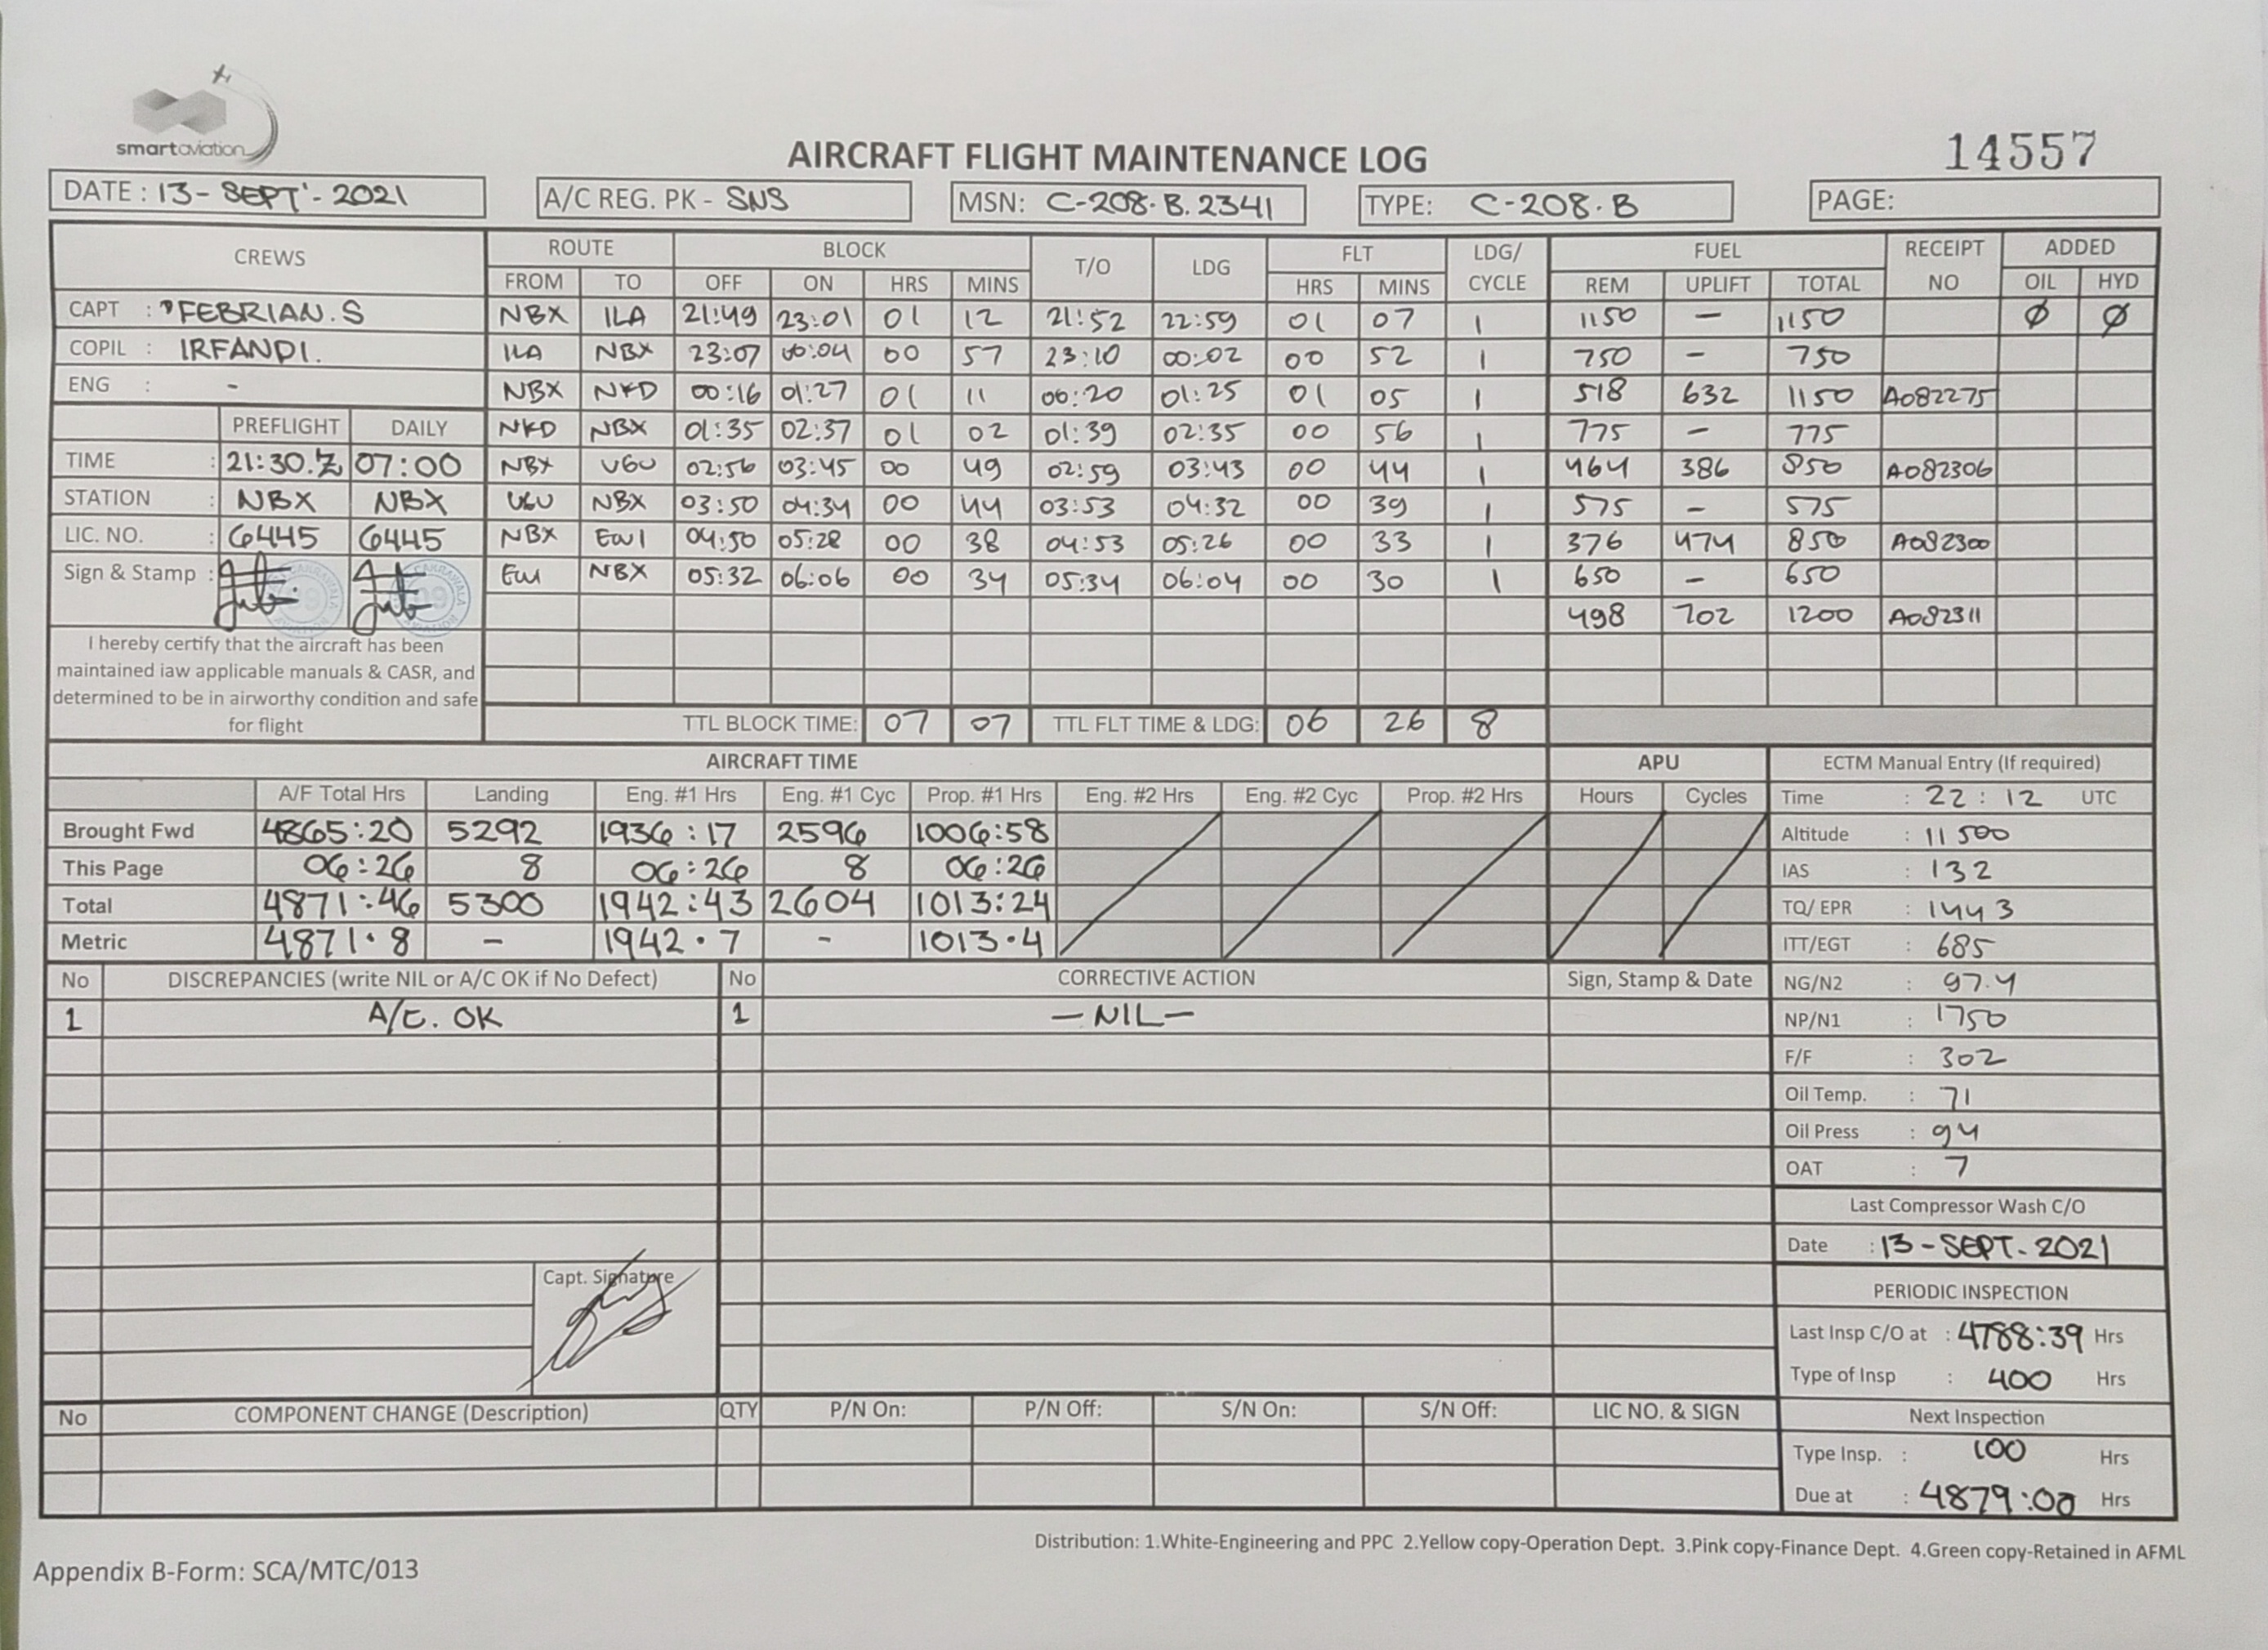 smartaviation
AIRCRAFT FLIGHT MAINTENANCE LOG
14557
DATE : 13- SEPT'- 2021 A/C REG. PK - SNS MSN: C-208.B.2341 TYPE: C-208.B PAGE:
CREWS ROUTE BLOCK T/O LDG FLT LDG/ CYCLE FUEL RECEIPT NO ADDED
FROM TO OFF ON HRS MINS HRS MINS REM UPLIFT TOTAL OIL HYD
CAPT : FEBRIAN.S NBX ILA 21:49 23:01 01 12 21:52 22:59 01 07 1 1150 - 1150 Ø Ø
COPIL : IRFANDI. ILA NBX 23:07 00:04 00 57 23:10 00:02 00 52 1 750 - 750
ENG : - NBX NKD 00:16 01:27 01 11 00:20 01:25 01 05 1 518 632 1150 A082275
PREFLIGHT DAILY NKD NBX 01:35 02:37 01 02 01:39 02:35 00 56 1 775 - 775
TIME : 21:30.Z 07:00 NBX UGU 02:56 03:45 00 49 02:59 03:43 00 44 1 464 386 850 A082306
STATION : NBX NBX UGU NBX 03:50 04:34 00 44 03:53 04:32 00 39 1 575 - 575
LIC. NO. : 6445 6445 NBX EWI 04:50 05:28 00 38 04:53 05:26 00 33 1 376 474 850 A082300
Sign & Stamp : EWI NBX 05:32 06:06 00 34 05:34 06:04 00 30 1 650 - 650
498 702 1200 A082311
I hereby certify that the aircraft has been
maintained iaw applicable manuals & CASR, and
determined to be in airworthy condition and safe
for flight
TTL BLOCK TIME: 07 07 TTL FLT TIME & LDG: 06 26 8
AIRCRAFT TIME APU ECTM Manual Entry (If required)
A/F Total Hrs Landing Eng. #1 Hrs Eng. #1 Cyc Prop. #1 Hrs Eng. #2 Hrs Eng. #2 Cyc Prop. #2 Hrs Hours Cycles Time : 22 : 12 UTC
Brought Fwd 4865:20 5292 1936:17 2596 1006:58 Altitude : 11500
This Page 06:26 8 06:26 8 06:26 IAS : 132
Total 4871:46 5300 1942:43 2604 1013:24 TQ/ EPR : 1443
Metric 4871.8 - 1942.7 - 1013.4 ITT/EGT : 685
No DISCREPANCIES (write NIL or A/C OK if No Defect) No CORRECTIVE ACTION Sign, Stamp & Date NG/N2 : 97.4
1 A/C. OK 1 -NIL- NP/N1 : 1750
F/F : 302
Oil Temp. : 71
Oil Press : 94
OAT : 7
Last Compressor Wash C/O
Date : 13-SEPT-2021
Capt. Signature
PERIODIC INSPECTION
Last Insp C/O at : 4788:39 Hrs
Type of Insp : 400 Hrs
No COMPONENT CHANGE (Description) QTY P/N On: P/N Off: S/N On: S/N Off: LIC NO. & SIGN Next Inspection
Type Insp. : 100 Hrs
Due at : 4879:00 Hrs
Distribution: 1.White-Engineering and PPC 2.Yellow copy-Operation Dept. 3.Pink copy-Finance Dept. 4.Green copy-Retained in AFML
Appendix B-Form: SCA/MTC/013